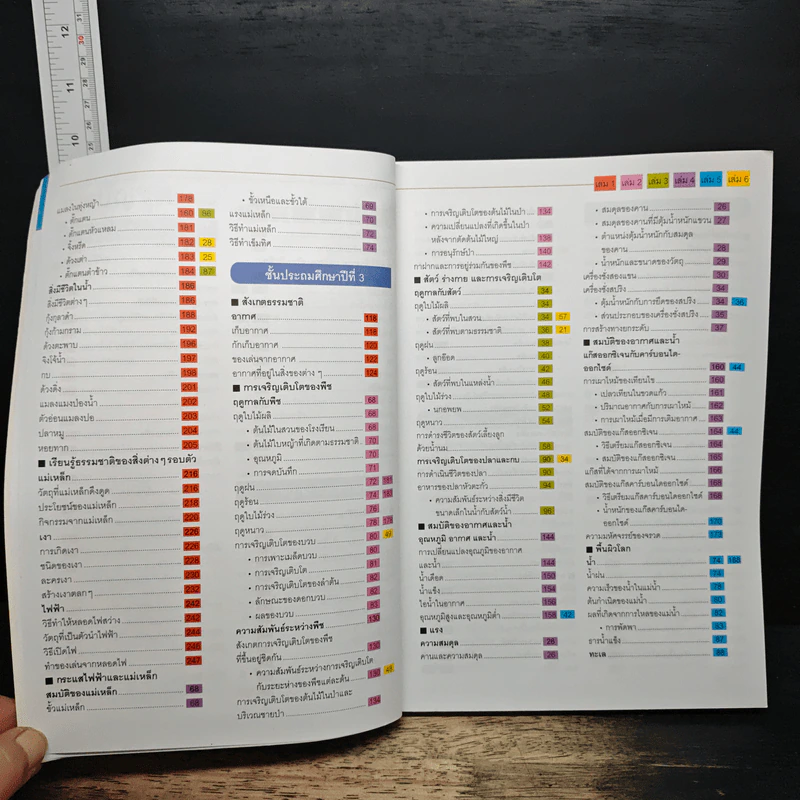 12
11
10
แมลงในทุ่งหญ้า 178
• ตั๊กแตน 160 86
• ตั๊กแตนหัวแหลม 181
• จิ้งหรีด 182 28
• ด้วงเต่า 183 25
• ตั๊กแตนตำข้าว 184 87
สิ่งมีชีวิตในน้ำ 186
สิ่งมีชีวิตต่างๆ 186
กุ้งกุลาดำ 188
กุ้งก้ามกราม 192
ด้วงตะพาบ 196
จิงโจ้น้ำ 197
กบ 198
ด้วงดิ่ง 201
แมลงแมงป่องน้ำ 202
ตัวอ่อนแมลงปอ 203
ปลาหมู 204
หอยทาก 205
■ เรียนรู้ธรรมชาติของสิ่งต่างๆ รอบตัว
แม่เหล็ก 216
วัตถุที่แม่เหล็กดึงดูด 216
ประโยชน์ของแม่เหล็ก 218
กิจกรรมจากแม่เหล็ก 220
เงา 226
การเกิดเงา 226
ชนิดของเงา 228
ละครเงา 230
สร้างเงาตลกๆ 232
ไฟฟ้า 242
วิธีทำให้หลอดไฟสว่าง 242
วัตถุที่เป็นตัวนำไฟฟ้า 244
วิธีเปิดไฟ 246
ทำของเล่นจากหลอดไฟ 247
■ กระแสไฟฟ้าและแม่เหล็ก
สมบัติของแม่เหล็ก 68
ขั้วแม่เหล็ก 68
• ขั้วเหนือและขั้วใต้ 69
แรงแม่เหล็ก 70
วิธีทำแม่เหล็ก 72
วิธีทำเข็มทิศ 74
ชั้นประถมศึกษาปีที่ 3
■ สังเกตธรรมชาติ
อากาศ 118
เก็บอากาศ 118
กักเก็บอากาศ 120
ของเล่นจากอากาศ 122
อากาศที่อยู่ในสิ่งของต่าง ๆ 124
■ การเจริญเติบโตของพืช
ฤดูกาลกับพืช 68
ฤดูใบไม้ผลิ 68
• ต้นไม้ในสวนของโรงเรียน 68
• ต้นไม้ใบหญ้าที่เกิดตามธรรมชาติ 70
• อุณหภูมิ 70
• การจดบันทึก 71
ฤดูฝน 72 181
ฤดูร้อน 74 187
ฤดูใบไม้ร่วง 76
ฤดูหนาว 78 178
การเจริญเติบโตของบวบ 80 49
• การเพาะเมล็ดบวบ 80
• การเจริญเติบโต 81
• การเจริญเติบโตของลำต้น 82
• ลักษณะของดอกบวบ 82
• ผลของบวบ 83
ความสัมพันธ์ระหว่างพืช 130
สังเกตการเจริญเติบโตของพืช
ที่ขึ้นอยู่ชิดกัน 130
• ความสัมพันธ์ระหว่างการเจริญเติบโต
กับระยะห่างของพืชแต่ละต้น 130 48
การเจริญเติบโตของต้นไม้ในป่าและ
บริเวณชายป่า 134
เล่ม 1 เล่ม 2 เล่ม 3 เล่ม 4 เล่ม 5 เล่ม 6
• การเจริญเติบโตของต้นไม้ในป่า 134
• ความเปลี่ยนแปลงที่เกิดขึ้นในป่า
หลังจากตัดต้นไม้ใหญ่ 138
• การอนุรักษ์ป่า 140
กาฝากและการอยู่ร่วมกันของพืช 142
■ สัตว์ ร่างกาย และการเจริญเติบโต
ฤดูกาลกับสัตว์ 34
ฤดูใบไม้ผลิ 34
• สัตว์ที่พบในสวน 34 57
• สัตว์ที่พบตามธรรมชาติ 36 21
ฤดูฝน 38
• ลูกอ๊อด 40
ฤดูร้อน 42
• สัตว์ที่พบในแหล่งน้ำ 46
ฤดูใบไม้ร่วง 48
• นกอพยพ 52
ฤดูหนาว 54
การดำรงชีวิตของสัตว์เลี้ยงลูก
ด้วยน้ำนม 58
การเจริญเติบโตของปลาและกบ 90 34
การดำเนินชีวิตของปลา 90
อาหารของปลาหัวตะกั่ว 94
• ความสัมพันธ์ระหว่างสิ่งมีชีวิต
ขนาดเล็กในน้ำกับสัตว์น้ำ 96
■ สมบัติของอากาศและน้ำ
อุณหภูมิ อากาศ และน้ำ 144
การเปลี่ยนแปลงอุณหภูมิของอากาศ
และน้ำ 144
น้ำเดือด 150
น้ำแข็ง 154
ไอน้ำในอากาศ 156
อุณหภูมิสูงและอุณหภูมิต่ำ 158 42
■ แรง
ความสมดุล 26
คานและความสมดุล 26
• สมดุลของคาน 26
• สมดุลของคานที่มีตุ้มน้ำหนักแขวน 27
• ตำแหน่งตุ้มน้ำหนักกับสมดุล
ของคาน 28
• น้ำหนักและขนาดของวัตถุ 29
เครื่องชั่งสองแขน 30
เครื่องชั่งสปริง 34
• ตุ้มน้ำหนักกับการยืดของสปริง 34 36
• ส่วนประกอบของเครื่องชั่งสปริง 36
การสร้างทางยกระดับ 37
■ สมบัติของอากาศและน้ำ
แก๊สออกซิเจนกับคาร์บอนได-
ออกไซด์ 160 44
การเผาไหม้ของเทียนไข 160
• เปลวเทียนในขวดแก้ว 161
• ปริมาณอากาศกับการเผาไหม้ 162
• การเผาไหม้เมื่อมีการเติมอากาศ 163
สมบัติของแก๊สออกซิเจน 164 44
• วิธีเตรียมแก๊สออกซิเจน 164
• สมบัติของแก๊สออกซิเจน 165
แก๊สที่ได้จากการเผาไหม้ 166
สมบัติของแก๊สคาร์บอนไดออกไซด์ 168
• วิธีเตรียมแก๊สคาร์บอนไดออกไซด์ 168
• น้ำหนักของแก๊สคาร์บอนได-
ออกไซด์ 170
ความมหัศจรรย์ของจรวด 173
■ พื้นผิวโลก
น้ำ 74
น้ำฝน 74
ความเร็วของน้ำในแม่น้ำ 78
ต้นกำเนิดของแม่น้ำ 80
ผลที่เกิดจากการไหลของแม่น้ำ 82
• การพัดพา 83
ธารน้ำแข็ง 87
ทะเล 88